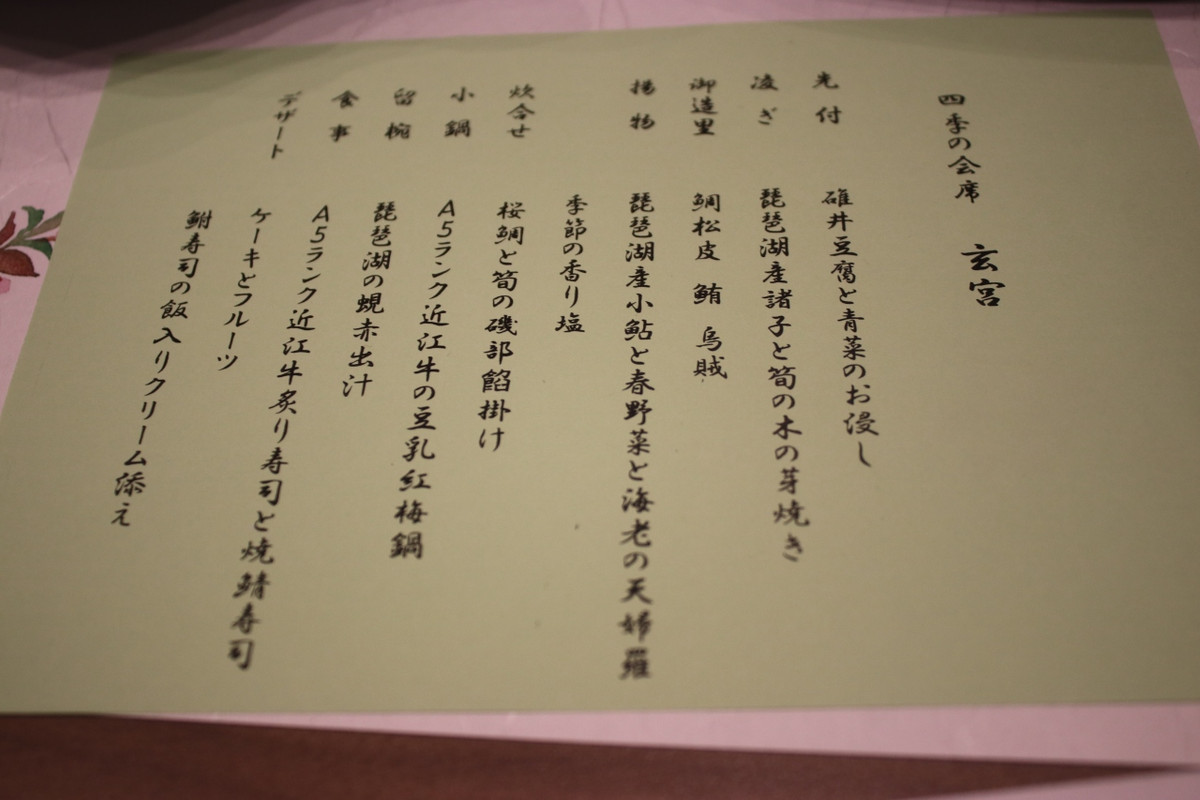 四季の会席 玄宮
先付 碓井豆腐と青菜のお浸し
凌ぎ 琵琶湖産諸子と筍の木の芽焼き
御造里 鯛松皮 鮪 烏賊
揚物 琵琶湖産小鮎と春野菜と海老の天婦羅
季節の香り塩
炊合せ 桜鯛と筍の磯部餡掛け
小鍋 A5ランク近江牛の豆乳紅梅鍋
留椀 琵琶湖の蜆赤出汁
食事 A5ランク近江牛炙り寿司と焼鯖寿司
デザート ケーキとフルーツ
鮒寿司の飯入りクリーム添え